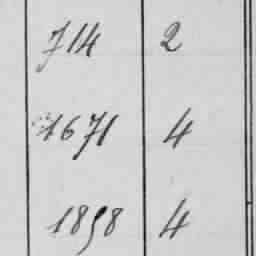 714 2
1671 4
1898 4